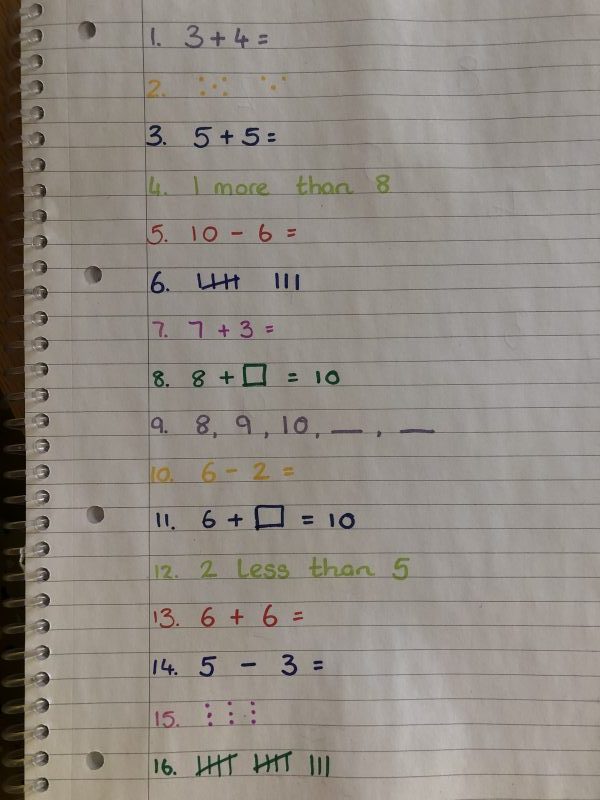 1. 3 + 4 =
2. ⁙ ∵
3. 5 + 5 =
4. 1 more than 8
5. 10 - 6 =
6. 卌 |||
7. 7 + 3 =
8. 8 + □ = 10
9. 8, 9, 10, __, __
10. 6 - 2 =
11. 6 + □ = 10
12. 2 less than 5
13. 6 + 6 =
14. 5 - 3 =
15. ⋮ ⋮ ⋮
16. 卌 卌 |||